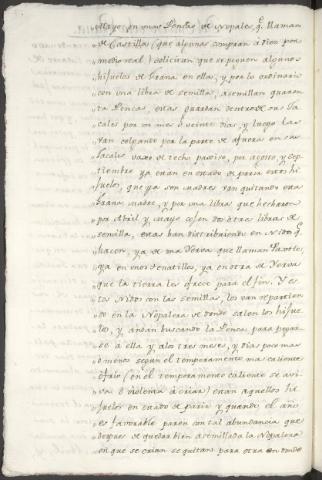 Mayo en unas Pencas de Nopales q.e llaman
de Castilla (que algunas compran á dies por
medio real) solicitan que se peguen algunos
hijuelos de Grana en ellas, y por lo ordinario
con una libra de semilla, asemillan quaren
ta Pencas, estas guardan dentro de sus Ja
cales por un mes ó veinte dias, y luego las
van colgando por la parte de afuera en sus
Jacales vaxo de techo paxiso, por agosto, y Sep
tiembre ya estan en estado de parir estos hi
juelos, que ya son madres van quitando esta
Grana madre, y por una libra que hecharon
por Abril y Mayo cojen dos ó tres libras de
semilla, estas van distribuiendo en Nidos q.e
hacen, ya de una Yerva que llaman Pastle,
ya en unos Tenatillos, ya en otra de Yerva
que la tierra les ofrece para el fin. Y es
tos Nidos con las semillas, los van repartien
do en la Nopalera de donde salen los hijue
los, y andan buscando la Penca, para pegar
se á ella y alos tres meses, y dias poco mas
ó menos segun el temperamento mas caliente
ó frio (en el temperamento caliente se avi
va ó violenta á criar) estan aquellos hi
juelos en estado de parir y quando el año
es favorable paren con tal abundancia que
despues de quedar bien asemillada la Nopalera
en que se crian se quitan para otra en donde